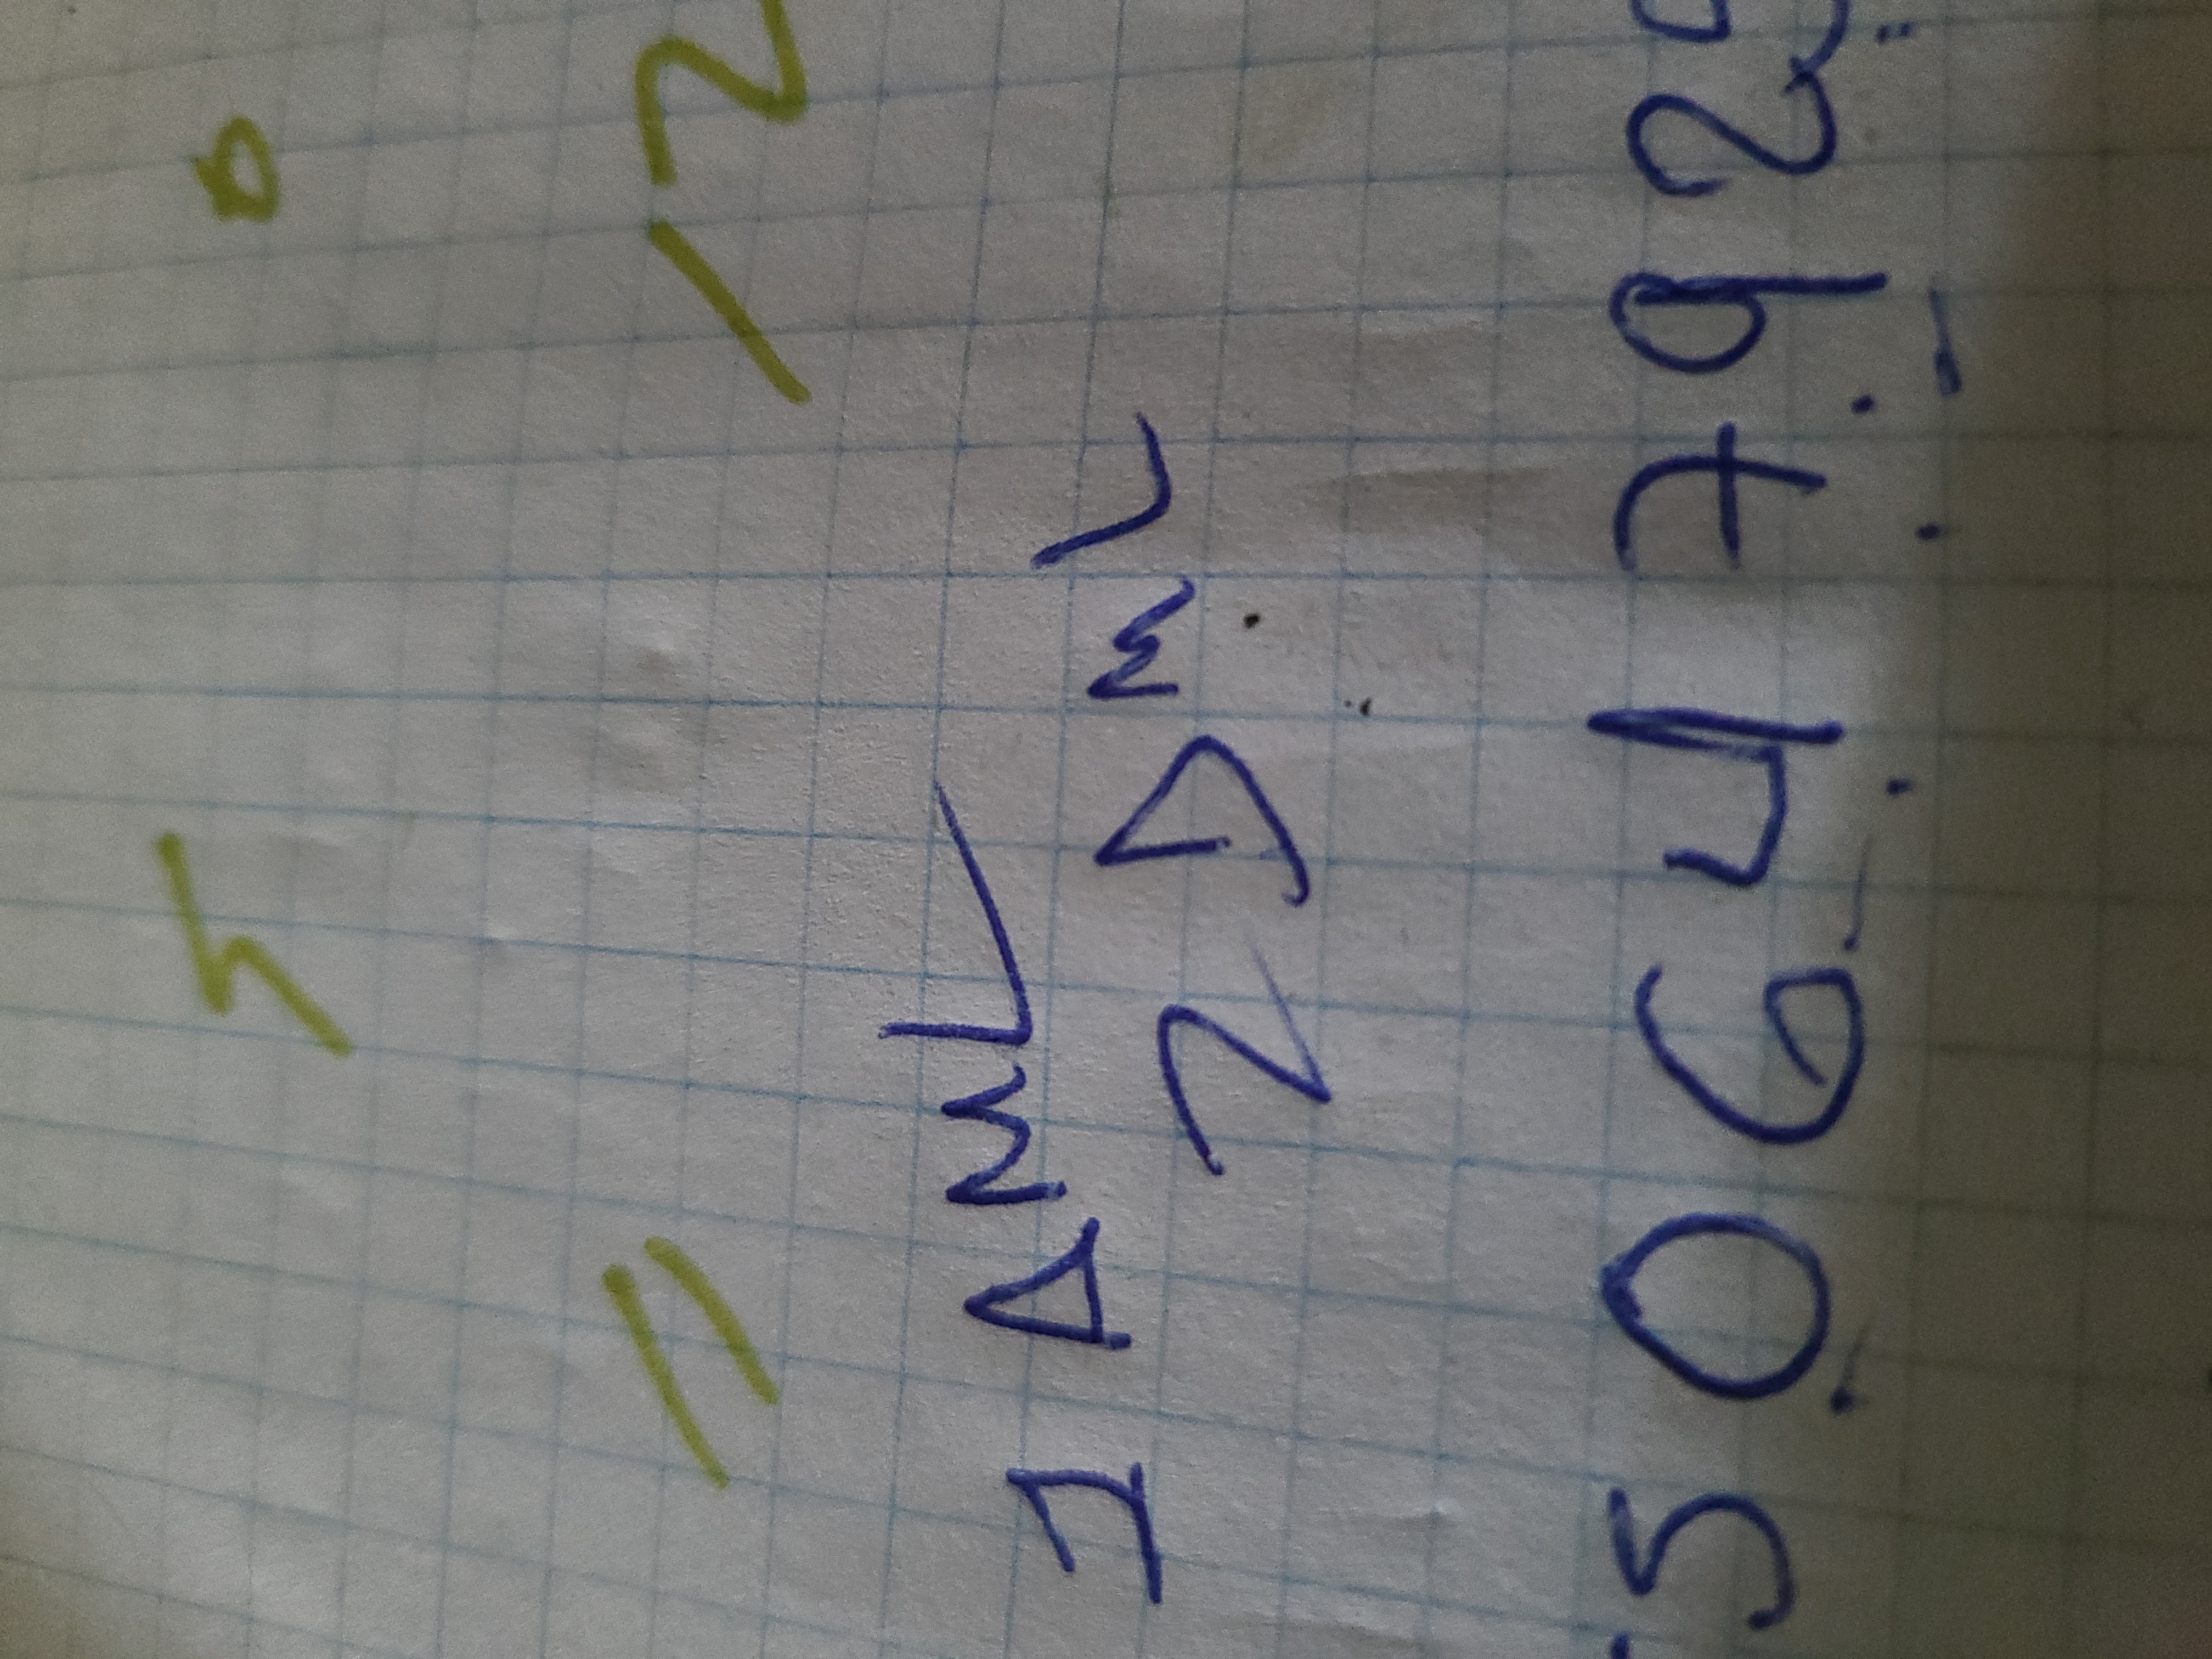 5 0
11 12
1 AML
2 DML
5064792